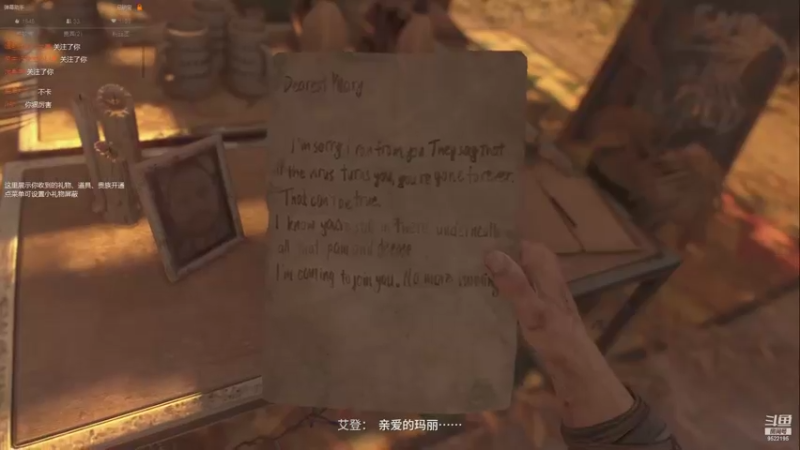 关注了你
关注了你
关注了你
不卡
你摸厉害
这里显示你收到的礼物、道具、贵族开通
点菜单可设置小礼物屏蔽
Dearest Mary
I'm sorry I ran from you They say that
if the virus turns you, you're gone forever.
That can't be true.
I know you're still in there underneath
all that pain and disease
I'm coming to join you. No more running
艾登： 亲爱的玛丽……
斗鱼
9522195